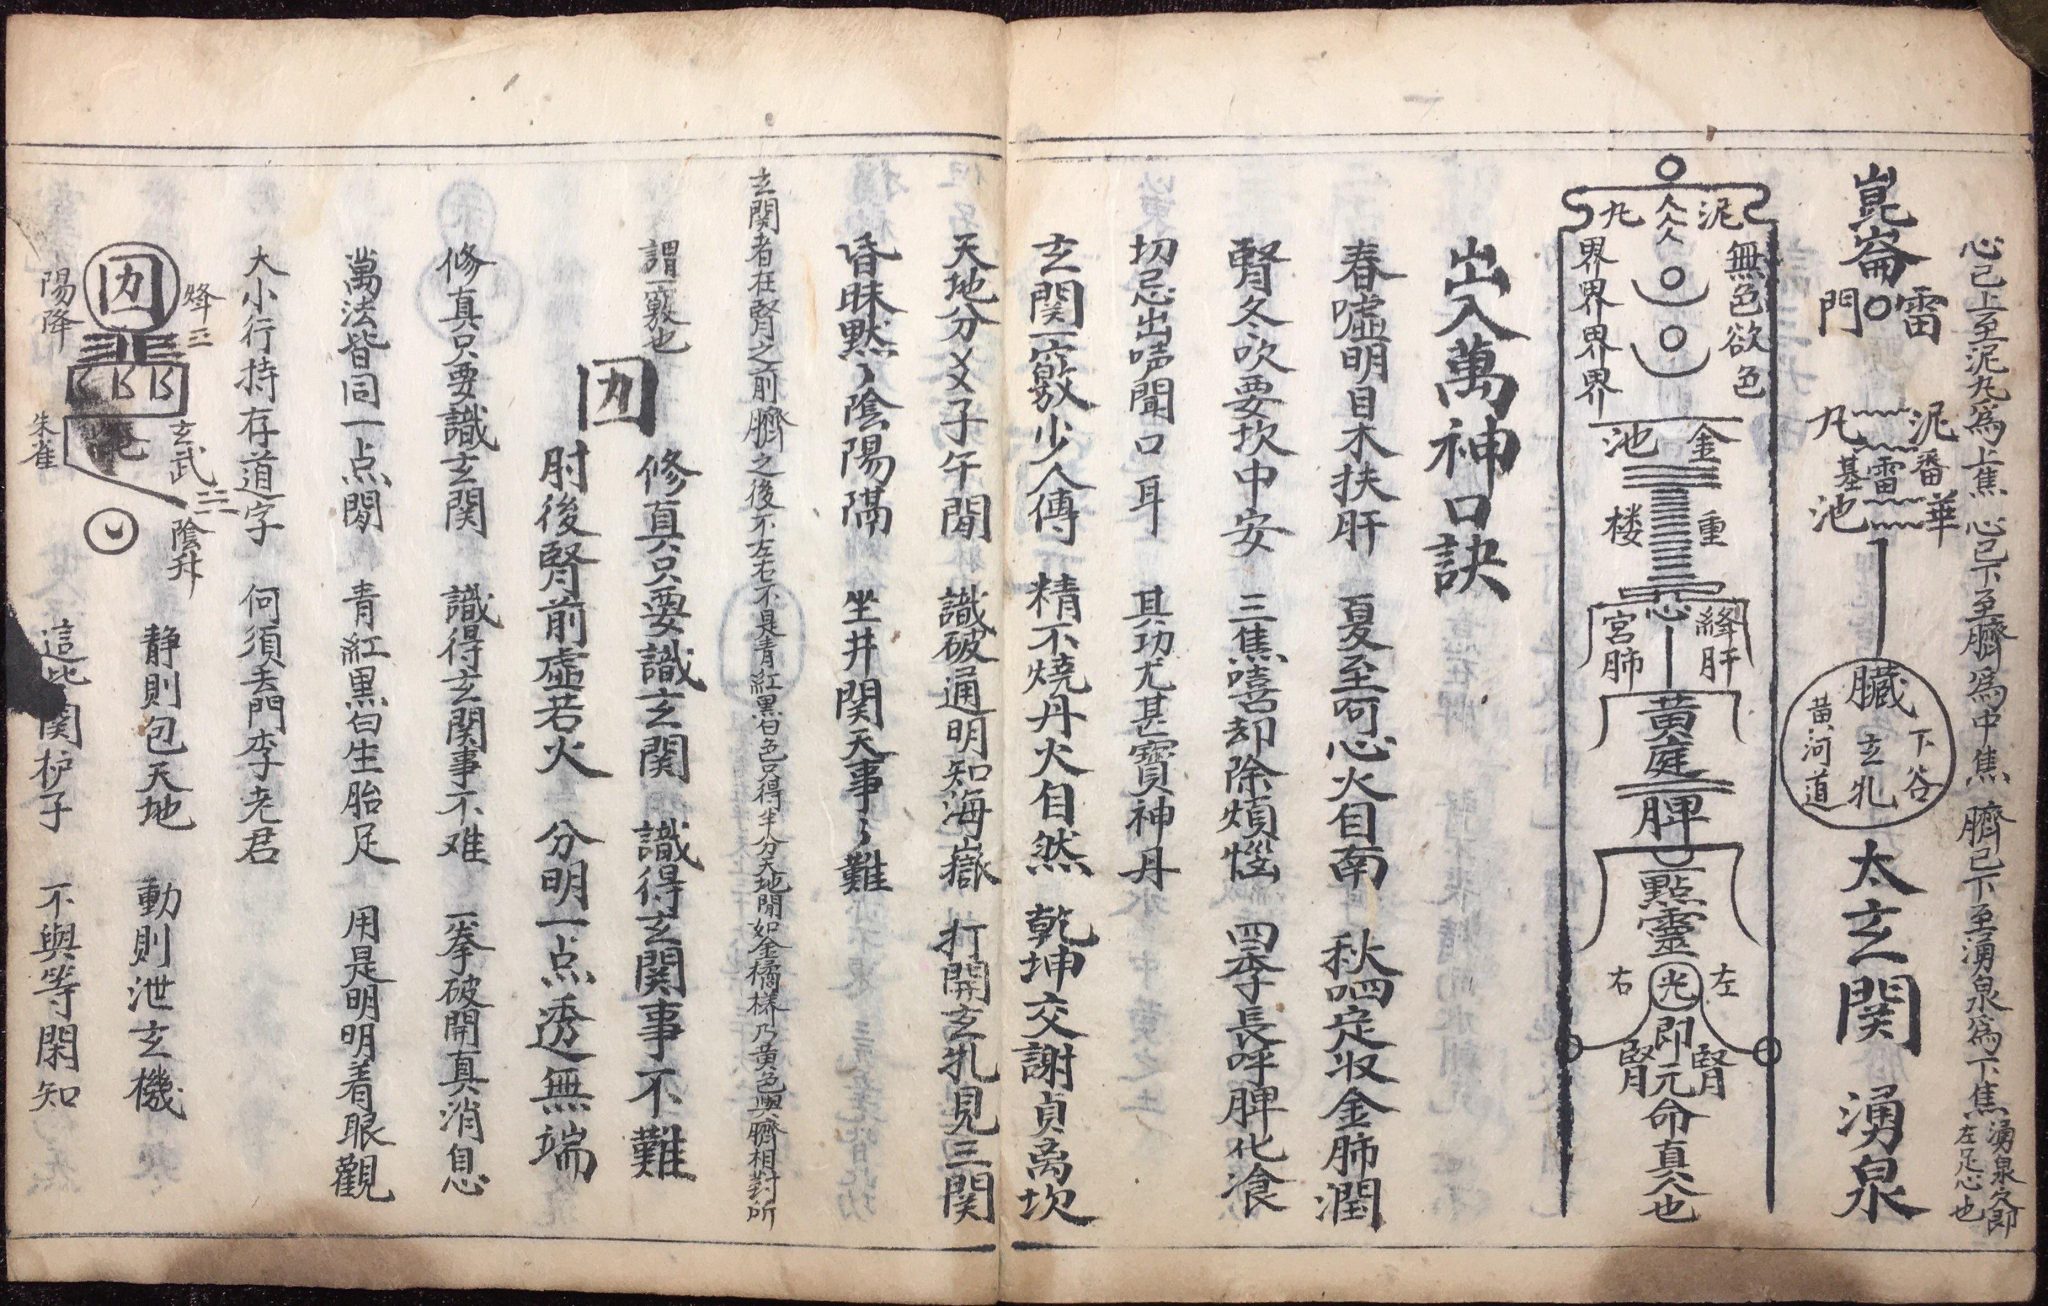 心已上至泥丸為上焦 心已下至臍為中焦 臍已下至湧泉為下焦
湧泉穴即
左足心也
崑崙
雷
門
泥丸
雷
華池
臓
下谷
玄牝
黄河道
太玄関 湧泉
泥丸
無色欲色
界界界界
金池
重楼
心
絳宮
肝
肺
黄庭
脾
一點靈
光
左
右
腎
腎
即元命真人也
出入萬神口訣
春噓明目木扶肝 夏至呵心火自南 秋呬定収金肺潤
腎冬吹要坎中安 三焦嘻却除煩惱 四季長呼脾化飡
切忌出呼聞口耳 其功尤甚寶神丹
玄関一竅少人傳 精不燒丹火自然 乾坤交謝貞离坎
天地分爻子午間 識破通明知海嶽 打開玄牝見三関
昏昧黙々陰陽隔 坐井関天事々難
玄関者在腎之前臍之後不左右不是青紅黒白色只得半分天地間如金橘樣乃黄色與臍相對所
謂一竅也
修真只要識玄関 識得玄関事不難
肘後腎前虚若火 分明一点透無端
修真只要識玄関 識得玄関事不难 一拳破開真消息
萬法皆同一点閞 青紅黒白生胎足 用是明明着眼觀
大小行持存道字 何須丢門李老君
陽降
朱雀
玄武
陰升
静則包天地 動則泄玄機
這此関枦子 不與等閑知